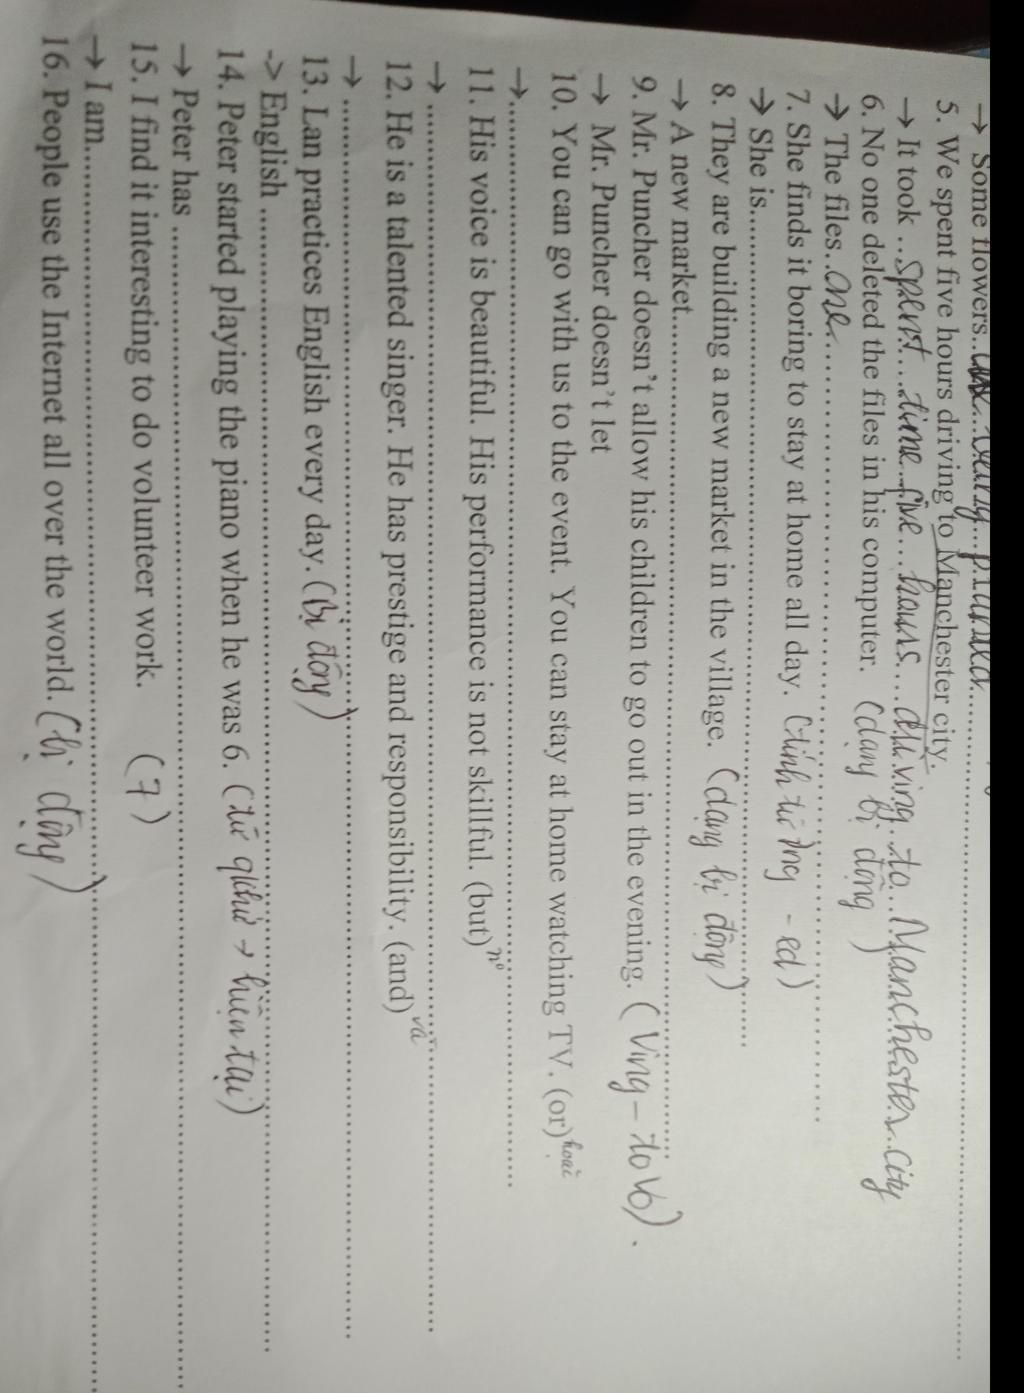 → Some flowers.............
5. We spent five hours driving to Manchester city.
→ It took ...spent...time...five...hours....driving..to..Manchester..city
6. No one deleted the files in his computer. (dạng bị động)
→ The files..are..........................................
7. She finds it boring to stay at home all day. (tính từ ing - ed)
→ She is..........................................
8. They are building a new market in the village. (dạng bị động)
→ A new market..........................................
9. Mr. Puncher doesn't allow his children to go out in the evening. (Ving - to Vo).
→ Mr. Puncher doesn't let
10. You can go with us to the event. You can stay at home watching TV. (or) hoặc
→..........................................
11. His voice is beautiful. His performance is not skillful. (but)
→ ..........................................
12. He is a talented singer. He has prestige and responsibility. (and) và
→ ..........................................
13. Lan practices English every day. (bị động)
-> English ..........................................
14. Peter started playing the piano when he was 6. (từ qkhứ → hiện tại)
→ Peter has ..........................................
15. I find it interesting to do volunteer work. (7)
→ I am..........................................
16. People use the Internet all over the world. (bị động)